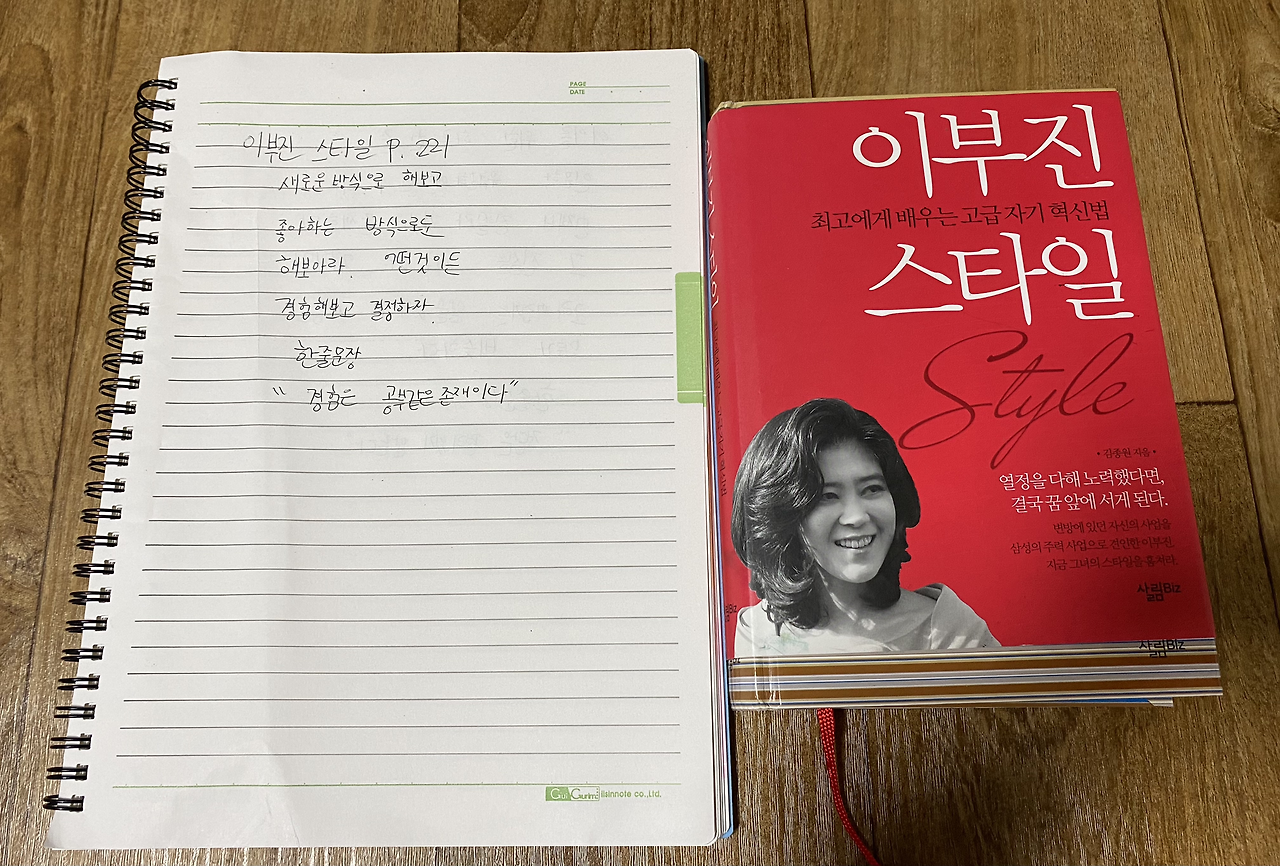 PAGE
DATE
이부진 스타일 P. 221
새로운 방식으로 해보고
좋아하는 방식으로든
해보아라. 어떤것이든
경험해보고 결정하자.
한줄문장
" 경험은 공부같은 존재이다"
Gurim ilsinnote co.,Ltd.
이부진
최고에게 배우는 고급 자기 혁신법
스타일
Style
• 김종원 지음 •
열정을 다해 노력했다면,
결국 꿈 앞에 서게 된다.
변방에 있던 자신의 사업을
삼성의 주력 사업으로 견인한 이부진.
지금 그녀의 스타일을 훔쳐라.
살림Biz
살림Biz